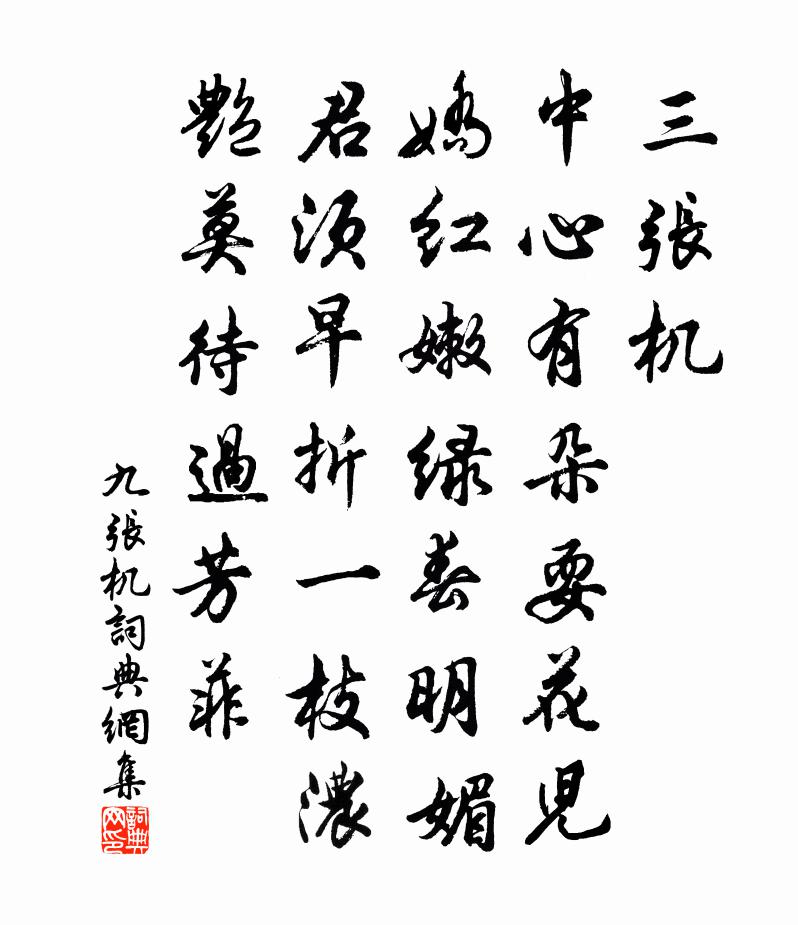 三張机
中心有朵耍花児
嬌红嫩緑春明媚
君须早折一枝濃
艷莫待過芳菲
九張机詞典網集
詞典网印